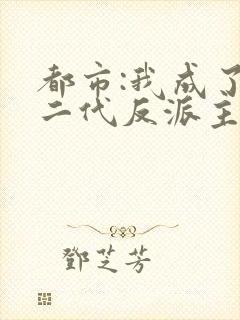 都市:我成了
二代反派主
鄧芝芳